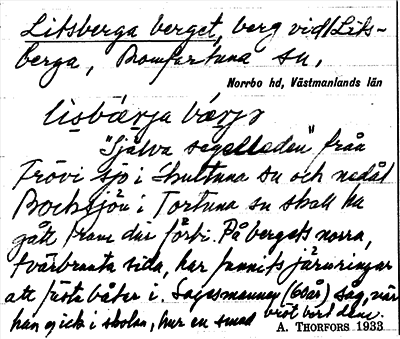 Litsberga berget, berg vid Lits-
berga, Romfartuna sn,
Norrbo hd, Västmanlands län
lisbærja bærjə
"Själva segelleden" från
Frövi sjö i Skultuna sn och nedåt
Rocksjön i Tortuna sn skall ha
gått fram där förbi. På bergets norra,
tvärbranta sida, har funnits järnringar
att fästa båtar i. Sagesmannen (60 år) såg, när
han gick i skolan, hur en smed bröt bort dem.
A. THORFORS 1933